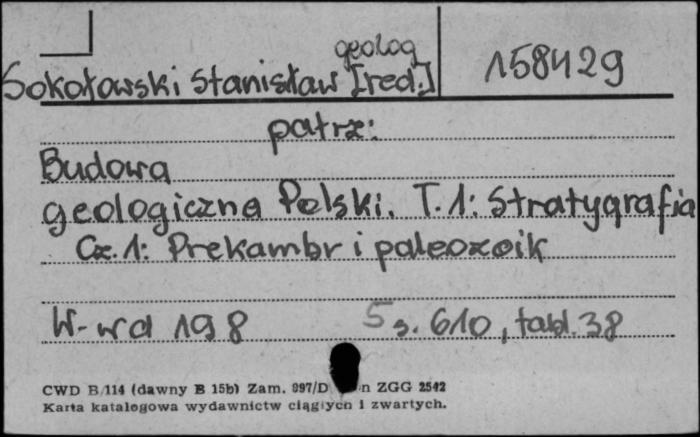 geolog
Sokołowski Stanisław [red.]
158429
patrz:
Budowa
geologiczna Polski. T.1: Stratygrafia
Cz.1: Prekambr i paleozoik
W-wa 198 s. 610, tabl. 38
CWD B/114 (dawny B 15b) Zam. 997/D n ZGG 2542
Karta katalogowa wydawnictw ciągłych i zwartych.